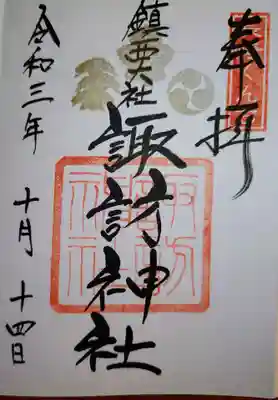 奉拝
鎮西大社
諏訪神社
諏訪
神社
令和三年 十月 十四日